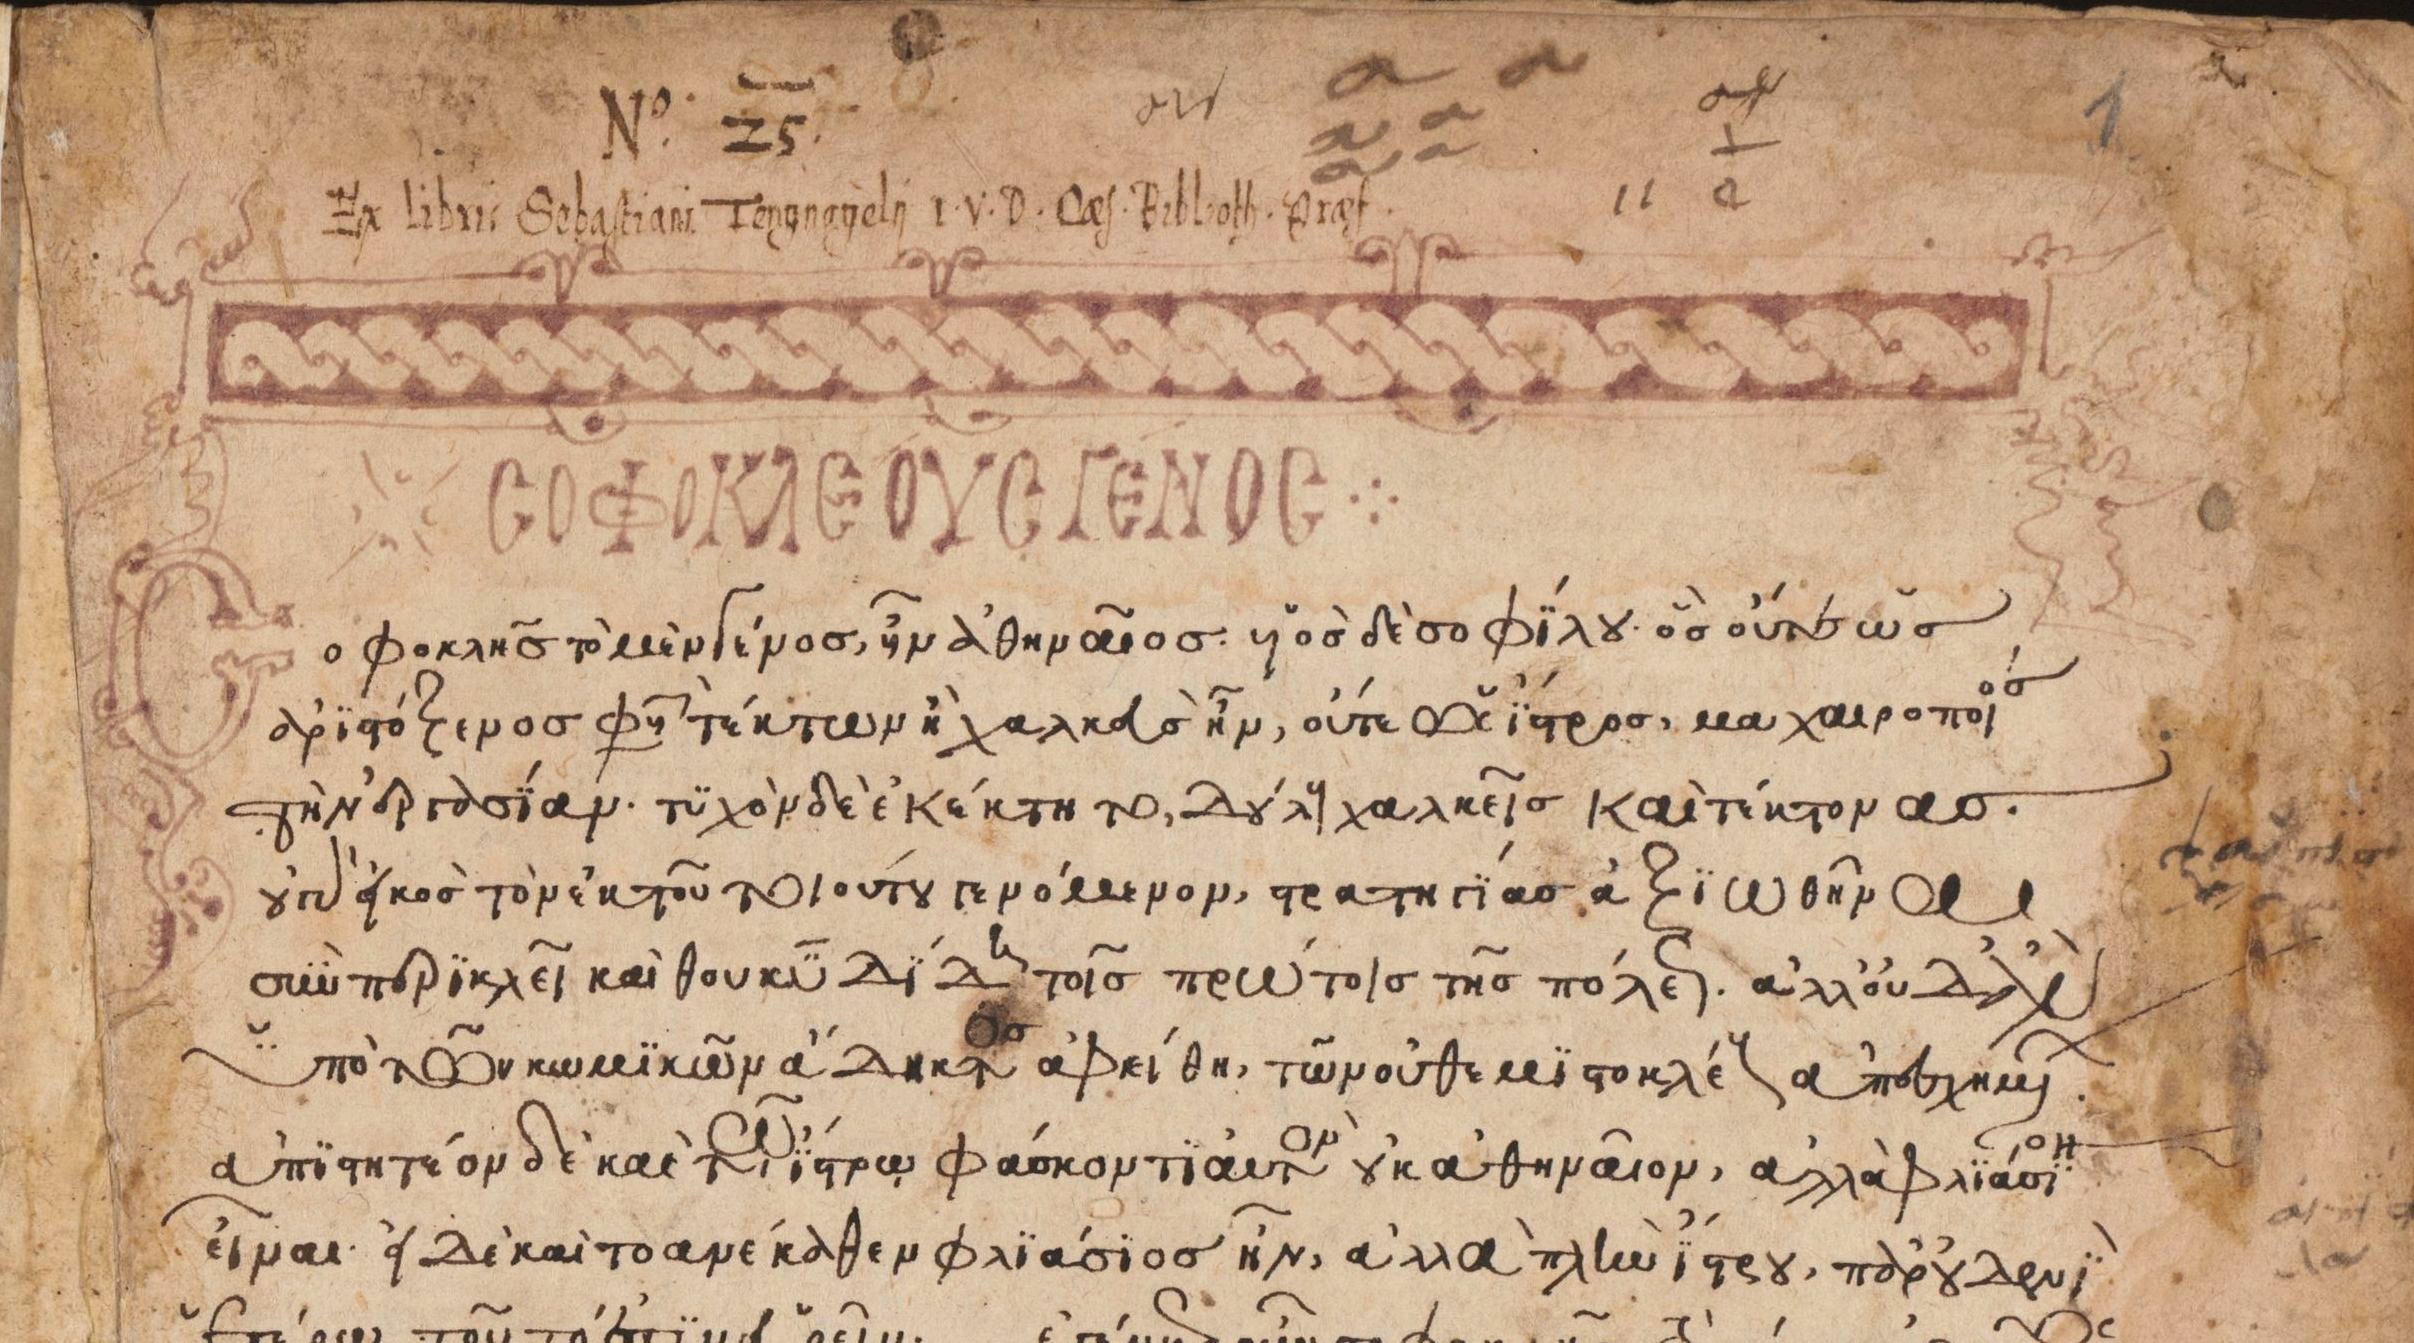 Nº. 25.
1
Ex libris Sebastiani Tengnagelij I. V. D. Cæs. Biblioth. Præf.
ΣΟΦΟΚΛΕΟΥΣ ΓΕΝΟΣ
Σοφοκλῆς τὸ μὲν γένος, ἦν ἀθηναῖος. υἱὸς δὲ σοφίλου. ὃς οὔτε ὡς
ἀριστόξενος φησὶ τέκτων ἢ χαλκεὺς ἦν, οὔτε ὡς ἴστρος, μαχαιροποιὸς
τὴν ἐργασίαν. τυχὸν δὲ ἐκέκτητο, δούλους χαλκεῖς καὶ τέκτονας.
οὐ γὰρ εἰκὸς τὸν ἐκ τοῦ τοιούτου γενόμενον, στρατηγίας ἀξιωθῆναι
σὺν περικλεῖ καὶ θουκυδίδῃ τοῖς πρώτοις τῆς πόλεως. ἀλλ' οὐδ' ἂν
ὑπὸ τῶν κωμικῶν ἄδηκτος ἀφείθη, τῶν οὐ θεμιστοκλέους ἀποσχημένων.
ἀπιστητέον δὲ καὶ τῷ ἴστρῳ φάσκοντι αὐτὸν οὐκ ἀθηναῖον, ἀλλὰ φλιάσιον
εἶναι. εἰ δὲ καὶ τὸ ἀνέκαθεν φλιάσιος ἦν, ἀλλὰ πλὴν ἴστρου, παρ' οὐδενὶ